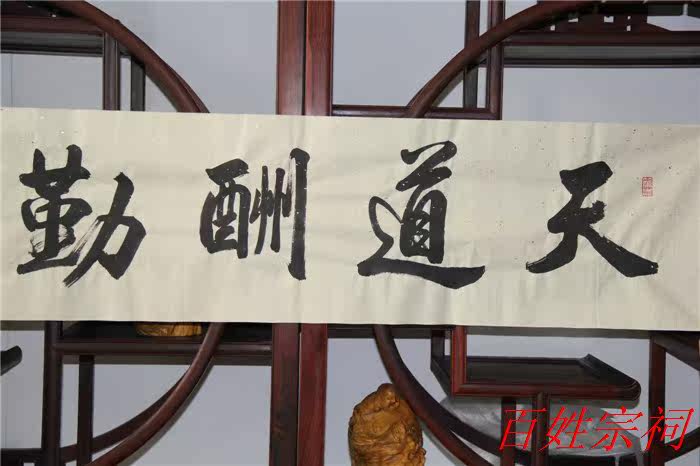 天道酬勤
百姓宗祠